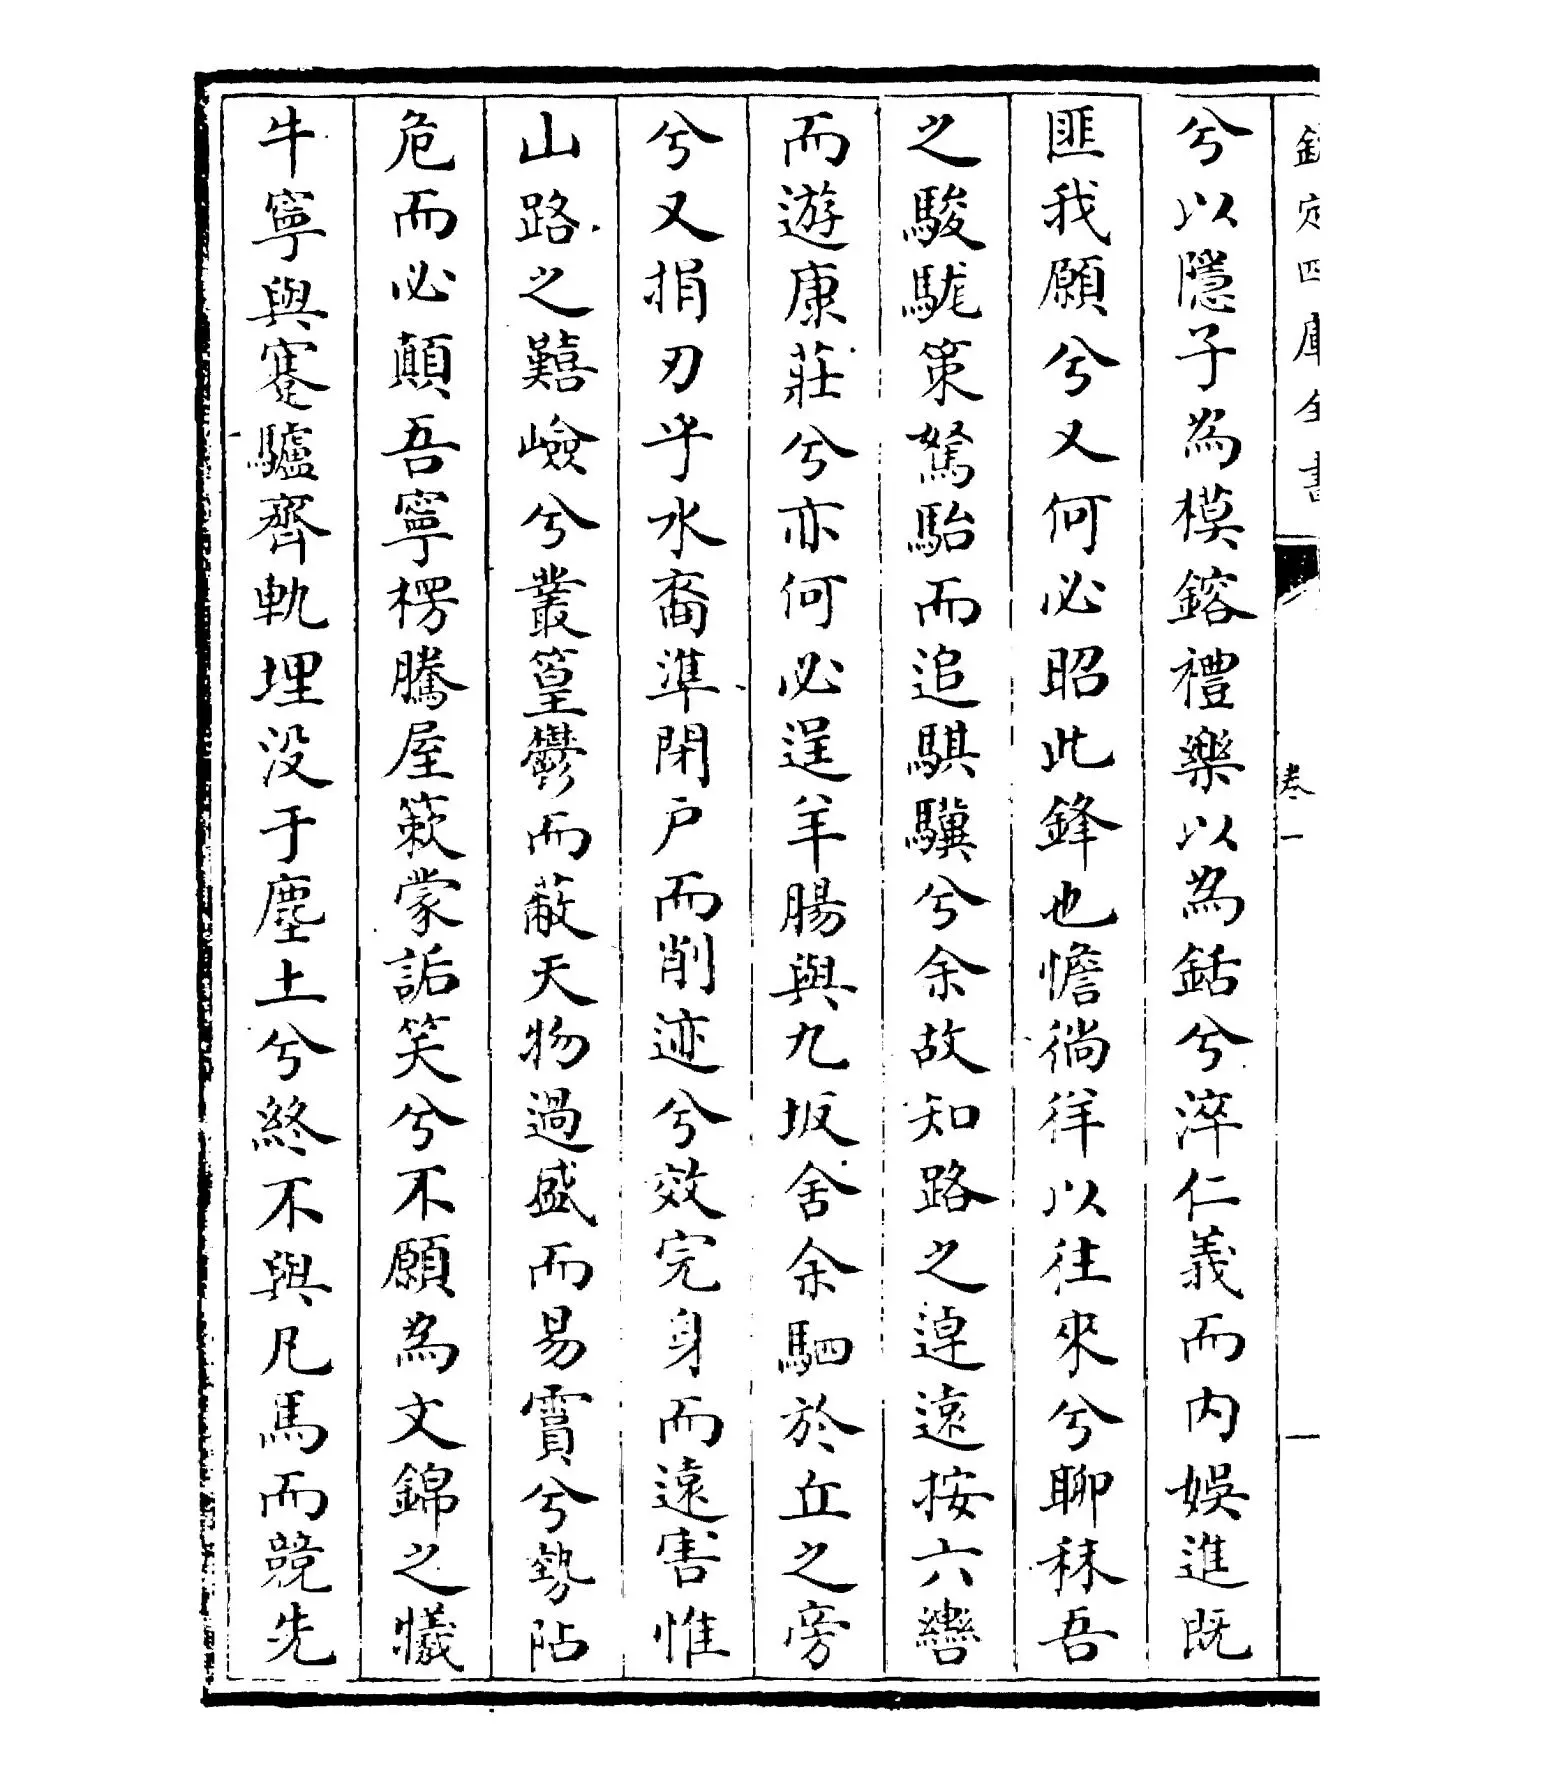 欽定四庫全書 卷一 一
兮以隱子為模鎔禮樂以為銛兮淬仁義而内娯進既
匪我願兮又何必昭此鋒也憺徜徉以往來兮聊秣吾
之駿駹策駑駘而追騏驥兮余故知路之逴遠按六轡
而遊康莊兮亦何必逞羊腸與九坂舍余駟於丘之旁
兮又捐刃乎水裔準閉户而削迹兮效完身而遠害惟
山路之囏嶮兮叢篁鬱而蔽天物過盛而易霣兮勢阽
危而必顛吾寧楞騰屋簌蒙詬笑兮不願為文錦之犧
牛寧與蹇驢齊軌埋没于塵土兮終不與凡馬而競先